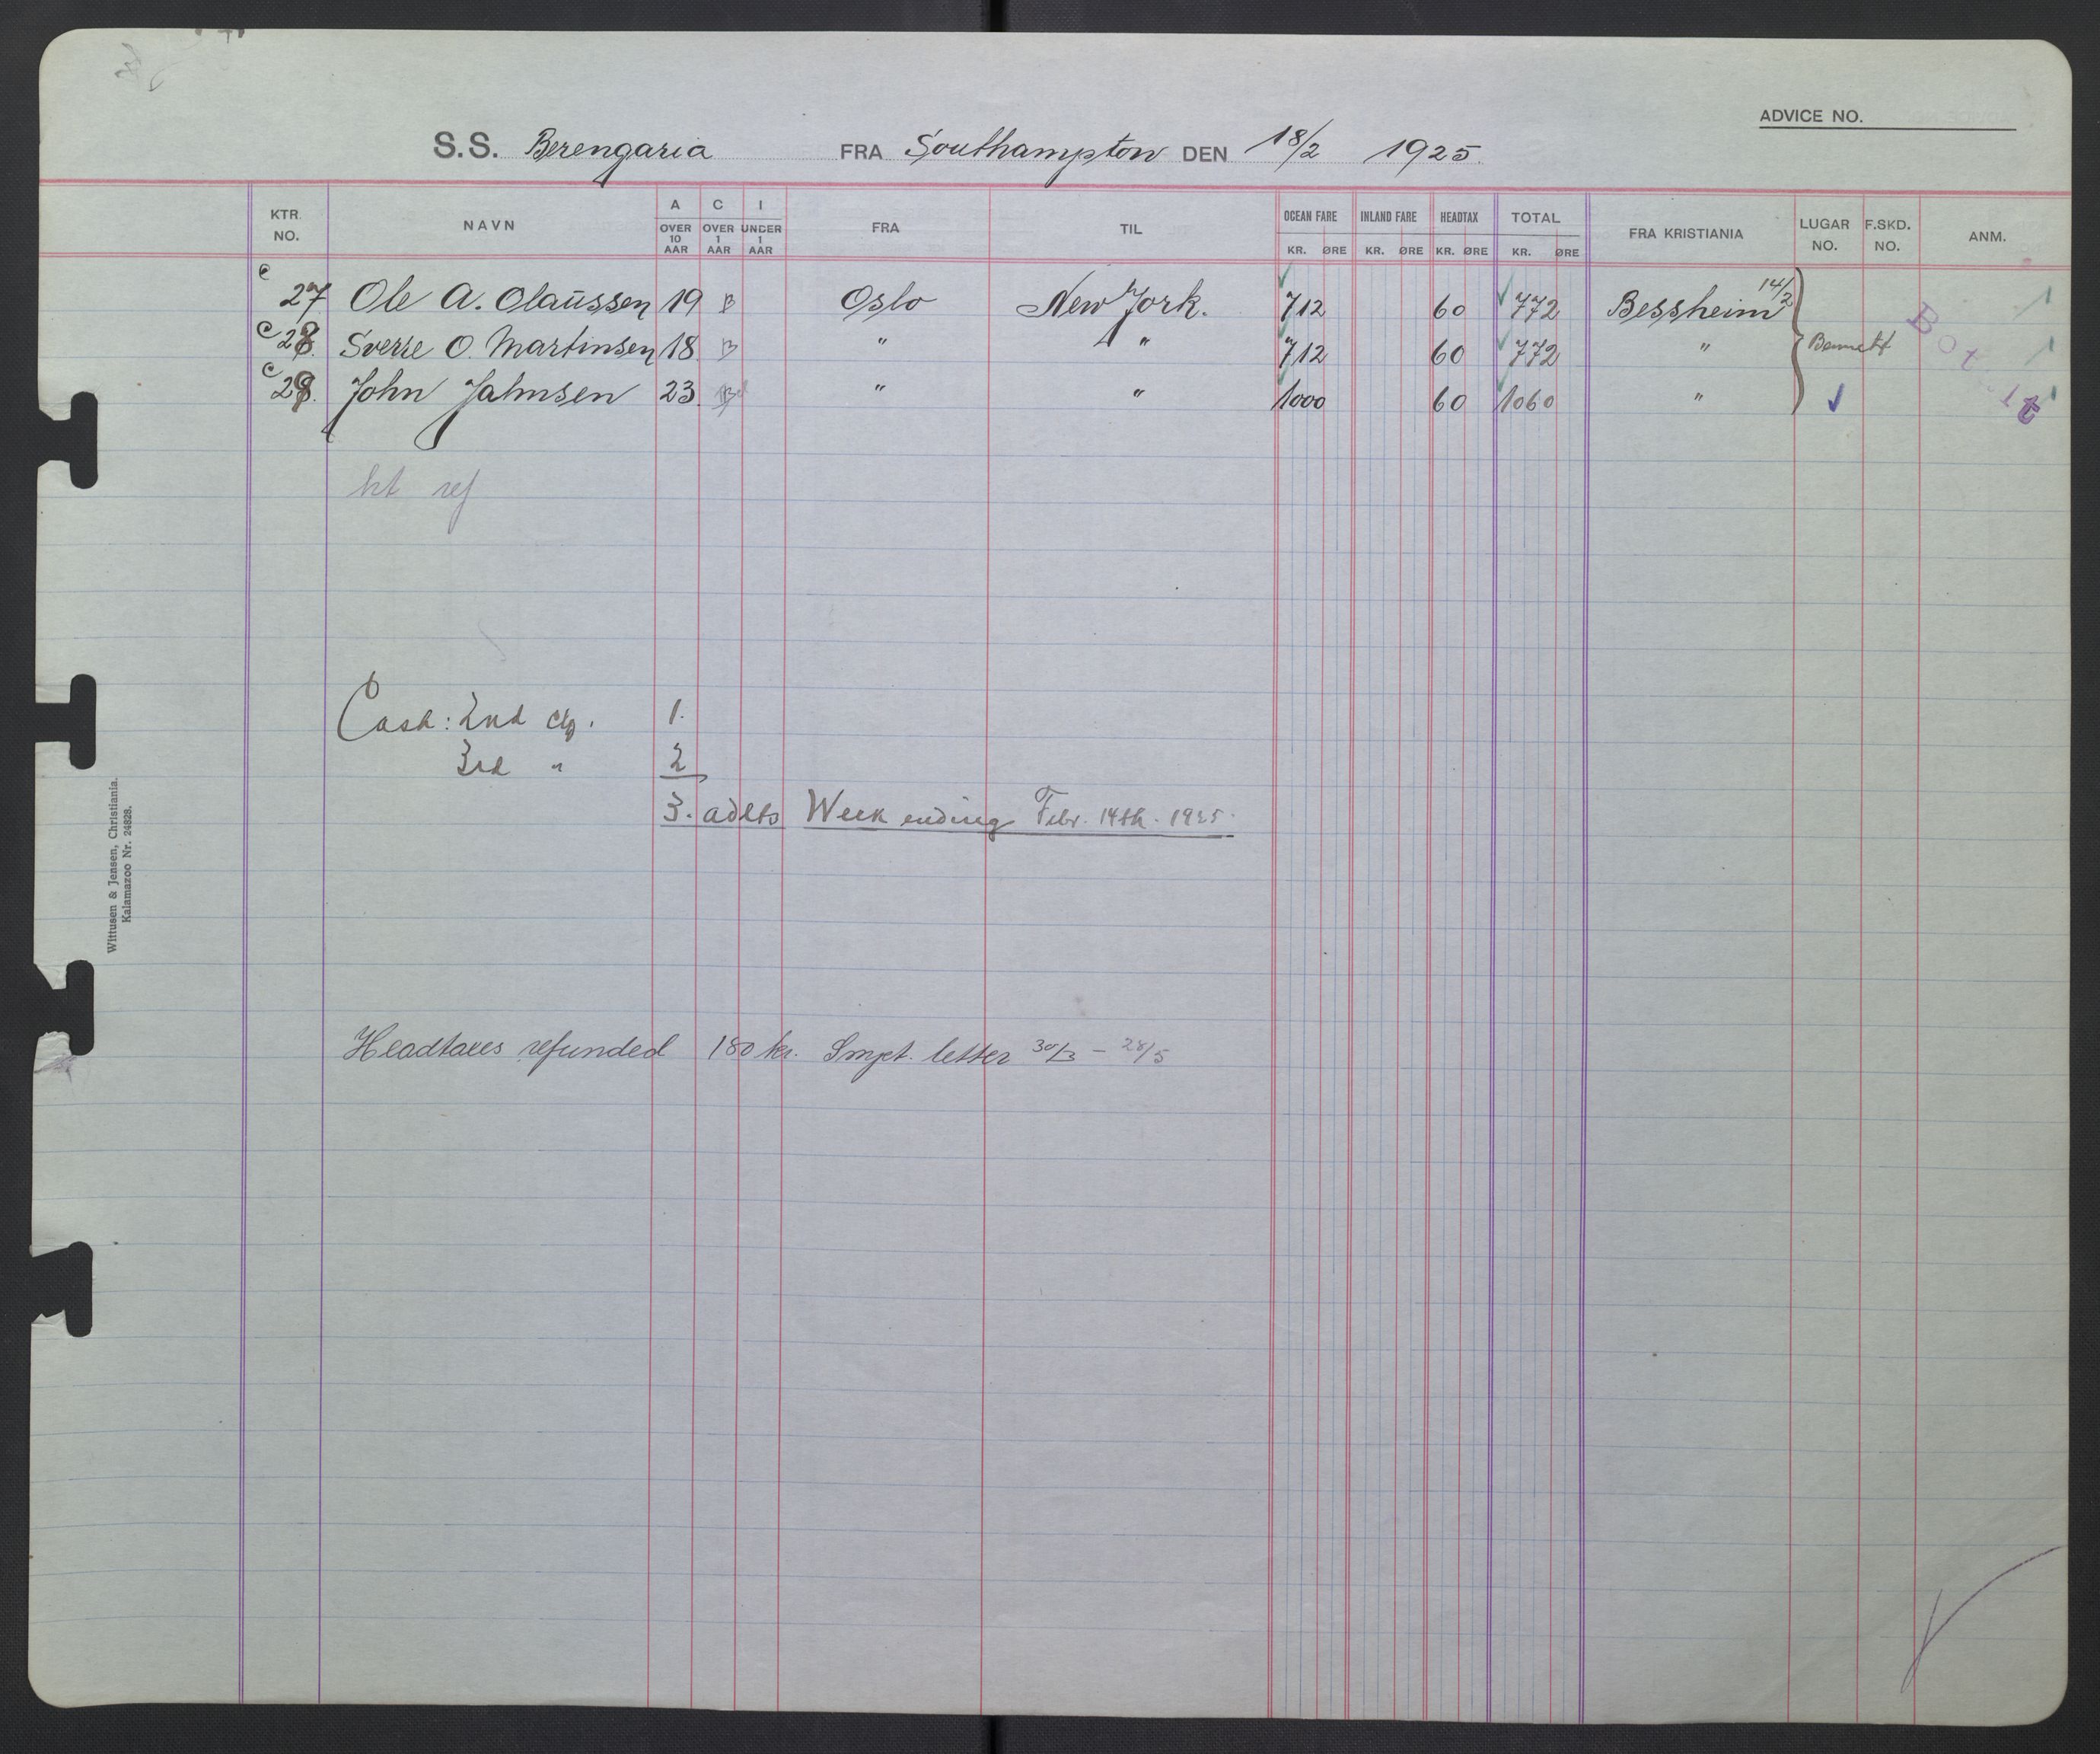 ADVICE NO.
S.S. Berengaria FRA Southampton DEN 18/2 1925.
KTR. NO. NAVN A OVER 10 AAR C OVER 1 AAR I UNDER 1 AAR FRA TIL OCEAN FARE KR. ØRE INLAND FARE KR. ØRE HEADTAX KR. ØRE TOTAL KR. ØRE FRA KRISTIANIA LUGAR NO. F.SKD. NO. ANM.
c 27 Ole A. Olaussen 19 B Oslo New York. 712 60 772 Bessheim 14/2
c 28. Sverre O. Martinsen 18 B " " 712 60 772 " Bennett
c 29. John Jahnsen 23. " " 1000 60 1060 "
ht ref
Cash: 2nd cl. 1.
3rd " 2
3. adlts Week ending Febr. 14th. 1925.
Headtaxes refunded 180 kr. Smpt. letter 30/3 – 28/5
Wittusen & Jensen, Christiania.
Kalamazoo Nr. 24828.